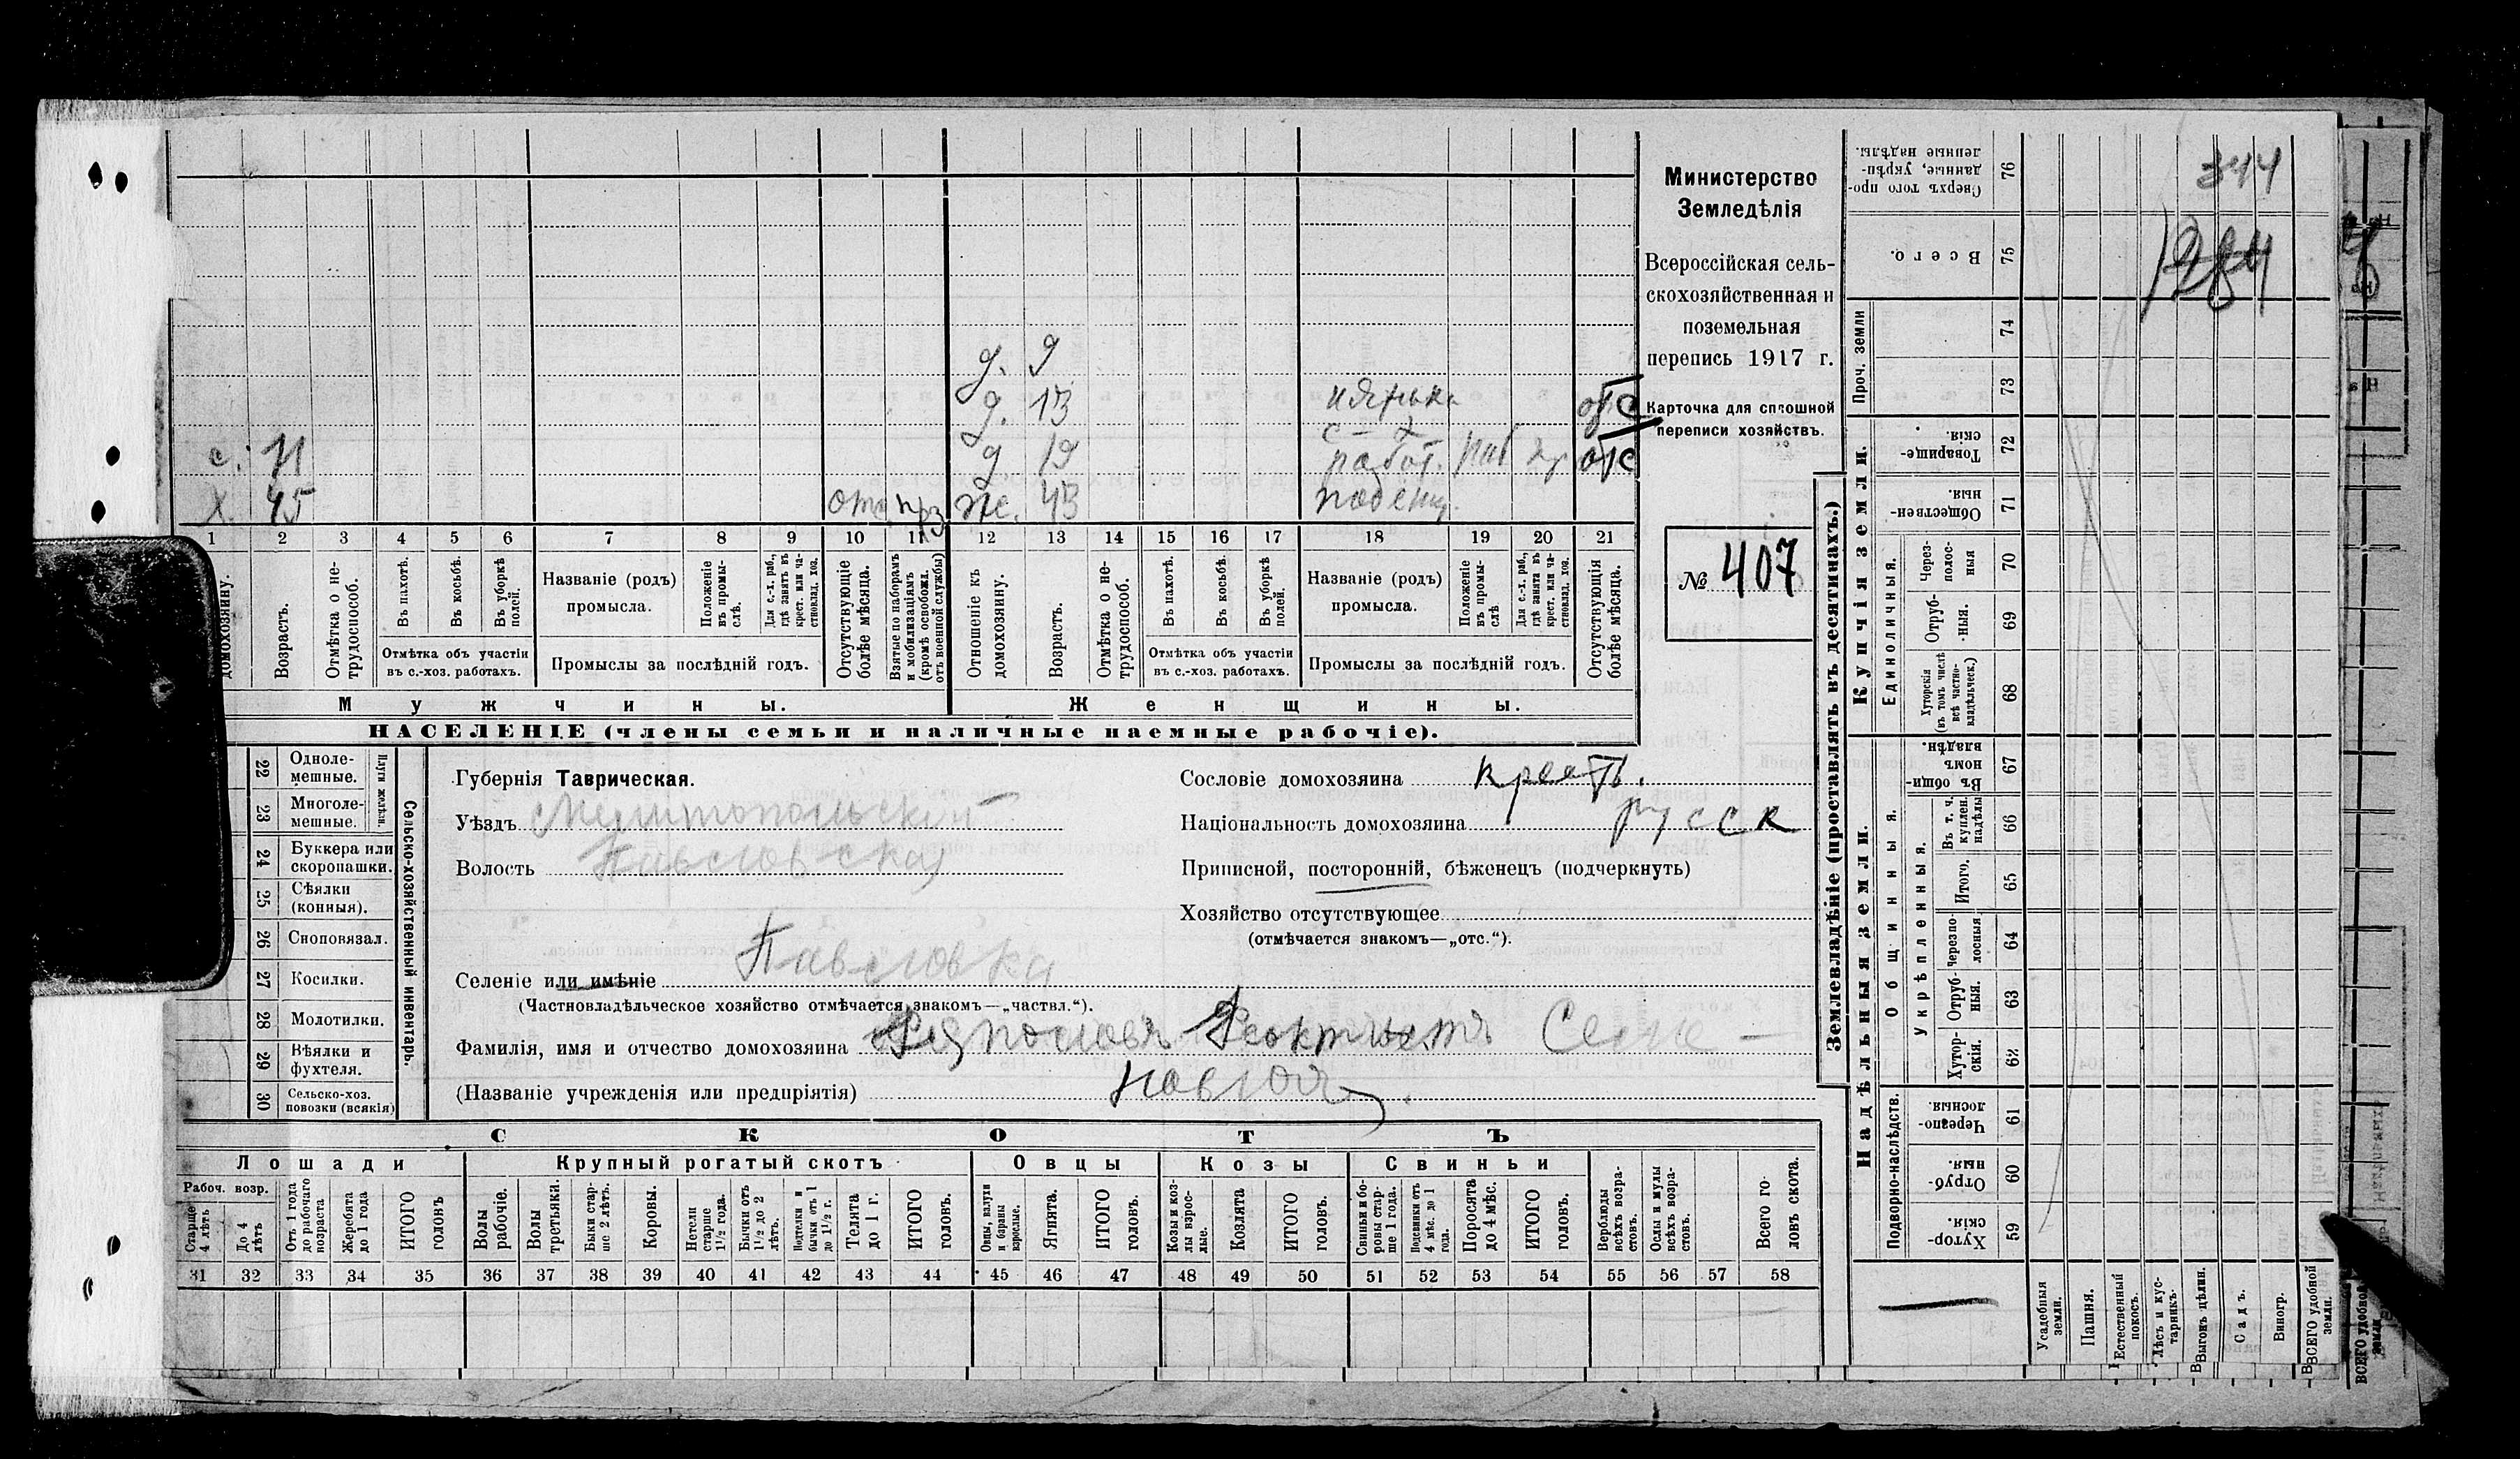 д. 9
д. 13 нянька отс
с. 11 д 19 работ. раб кр отс
х. 45 отс. прз ж. 43 поденщ.
1 2 3 4 5 6 7 8 9 10 11 12 13 14 15 16 17 18 19 20 21
домохозяину.
Возрастъ.
Отмѣтка о не-
трудоспособ.
Въ пахотѣ.
Въ косьбѣ.
Въ уборкѣ
полей.
Отмѣтка объ участіи
въ с.-хоз. работахъ.
Названіе (родъ)
промысла.
Положеніе
въ промы-
слѣ.
Для с.-х. раб.,
гдѣ занятъ въ
крест. или ча-
стновлад. хоз.
Промыслы за послѣдній годъ.
Отсутствующіе
болѣе мѣсяца.
Взятые по наборамъ
и мобилизаціямъ
(кромѣ освобожд.
отъ военной службы)
Отношеніе къ
домохозяину.
Возрастъ.
Отмѣтка о не-
трудоспособ.
Въ пахотѣ.
Въ косьбѣ.
Въ уборкѣ
полей.
Отмѣтка объ участіи
въ с.-хоз. работахъ.
Названіе (родъ)
промысла.
Положеніе
въ промы-
слѣ
Для с.-х. раб.,
гдѣ занята въ
крест. или ча-
стновлад. хоз.
Промыслы за послѣдній годъ.
Отсутствующія
болѣе мѣсяца.
Мужчины.
Женщины.
НАСЕЛЕНІЕ (члены семьи и наличные наемные рабочіе).
Министерство
Земледѣлія
Всероссійская сель-
скохозяйственная и
поземельная
перепись 1917 г.
Карточка для сплошной
переписи хозяйствъ.
№ 407
22 Одноле-
мешные.
23 Многоле-
мешные.
Плуги желѣзн.
24 Буккера или
скоропашки.
25 Сѣялки
(конныя).
26 Сноповязал.
27 Косилки.
28 Молотилки.
29 Вѣялки и
фухтеля.
30 Сельско-хоз.
повозки (всякія)
Сельско-хозяйственный инвентарь.
Губернія Таврическая.
Уѣздъ Мелитопольский
Волость Павловская
Селеніе или имѣніе Павловка
(Частновладѣльческое хозяйство отмѣчается знакомъ—„частвл.“).
Фамилія, имя и отчество домохозяина Феоктистъ Семе-
(Названіе учрежденія или предпріятія) новичъ
Сословіе домохозяина крест.
Національность домохозяина русск
Приписной, посторонній, бѣженецъ (подчеркнуть)
Хозяйство отсутствующее
(отмѣчается знакомъ—„отс.“).
СКОТЪ
Лошади
Крупный рогатый скотъ
Овцы
Козы
Свиньи
Рабоч. возр.
Старше
4 лѣтъ
До 4
лѣтъ
Отъ 1 года
до рабочаго
возраста
Жеребята
до 1 года
ИТОГО
головъ
Волы
рабочіе.
Волы
третьяки.
Быки стар-
ше 2 лѣтъ.
Коровы.
Нетели
старше
1½ года.
Бычки отъ
1½ до 2
лѣтъ.
Подтелки и
бычки отъ 1
до 1½ г.
Телята
до 1 г.
ИТОГО
головъ.
Овцы, валухи
и бараны
взрослые.
Ягнята.
ИТОГО
головъ.
Козы и коз-
лы взрос-
лые.
Козлята
ИТОГО
головъ.
Свиньи и бо-
ровы стар-
ше 1 года.
Подсвинки отъ
4 мѣс. до 1
года.
Поросята
до 4 мѣс.
ИТОГО
головъ.
Верблюды
всѣхъ возра-
стовъ.
Ослы и мулы
всѣхъ возра-
стовъ.
Всего го-
ловъ скота.
31 32 33 34 35 36 37 38 39 40 41 42 43 44 45 46 47 48 49 50 51 52 53 54 55 56 57 58
Землевладѣніе (проставлять въ десятинахъ.)
Сверхъ того про-
данные, укрѣп-
ленные надѣлы.
76
344
Всего.
75
1284
Проч. земли
74
73
Купчія земли.
Товарище-
скія.
72
Обществен-
ныя.
71
Единоличныя.
Через-
полос-
ныя
70
Отруб-
ныя.
69
Хуторскія
(въ томъ числѣ
всѣ частно-
владѣльческ.)
68
Надѣльныя земли.
Въ общин-
номъ
владѣн.
67
Общинныя.
Укрѣпленныя.
Въ т. ч.
куплен.
надѣлы
66
Итого.
65
Черезпо-
лосныя
64
Отруб-
ныя.
63
Хутор-
скія.
62
Подворно-наслѣдств.
Черезпо-
лосныя.
61
Отруб-
ныя.
60
Хутор-
скія.
59
Усадебныя
земли.
Пашня.
Естественный
покосъ.
Лѣсъ и кус-
тарникъ.
Выгонъ цѣлин.
Садъ.
Виногр.
ВСЕГО удобной
земли.
ВСЕГО удобной
земли